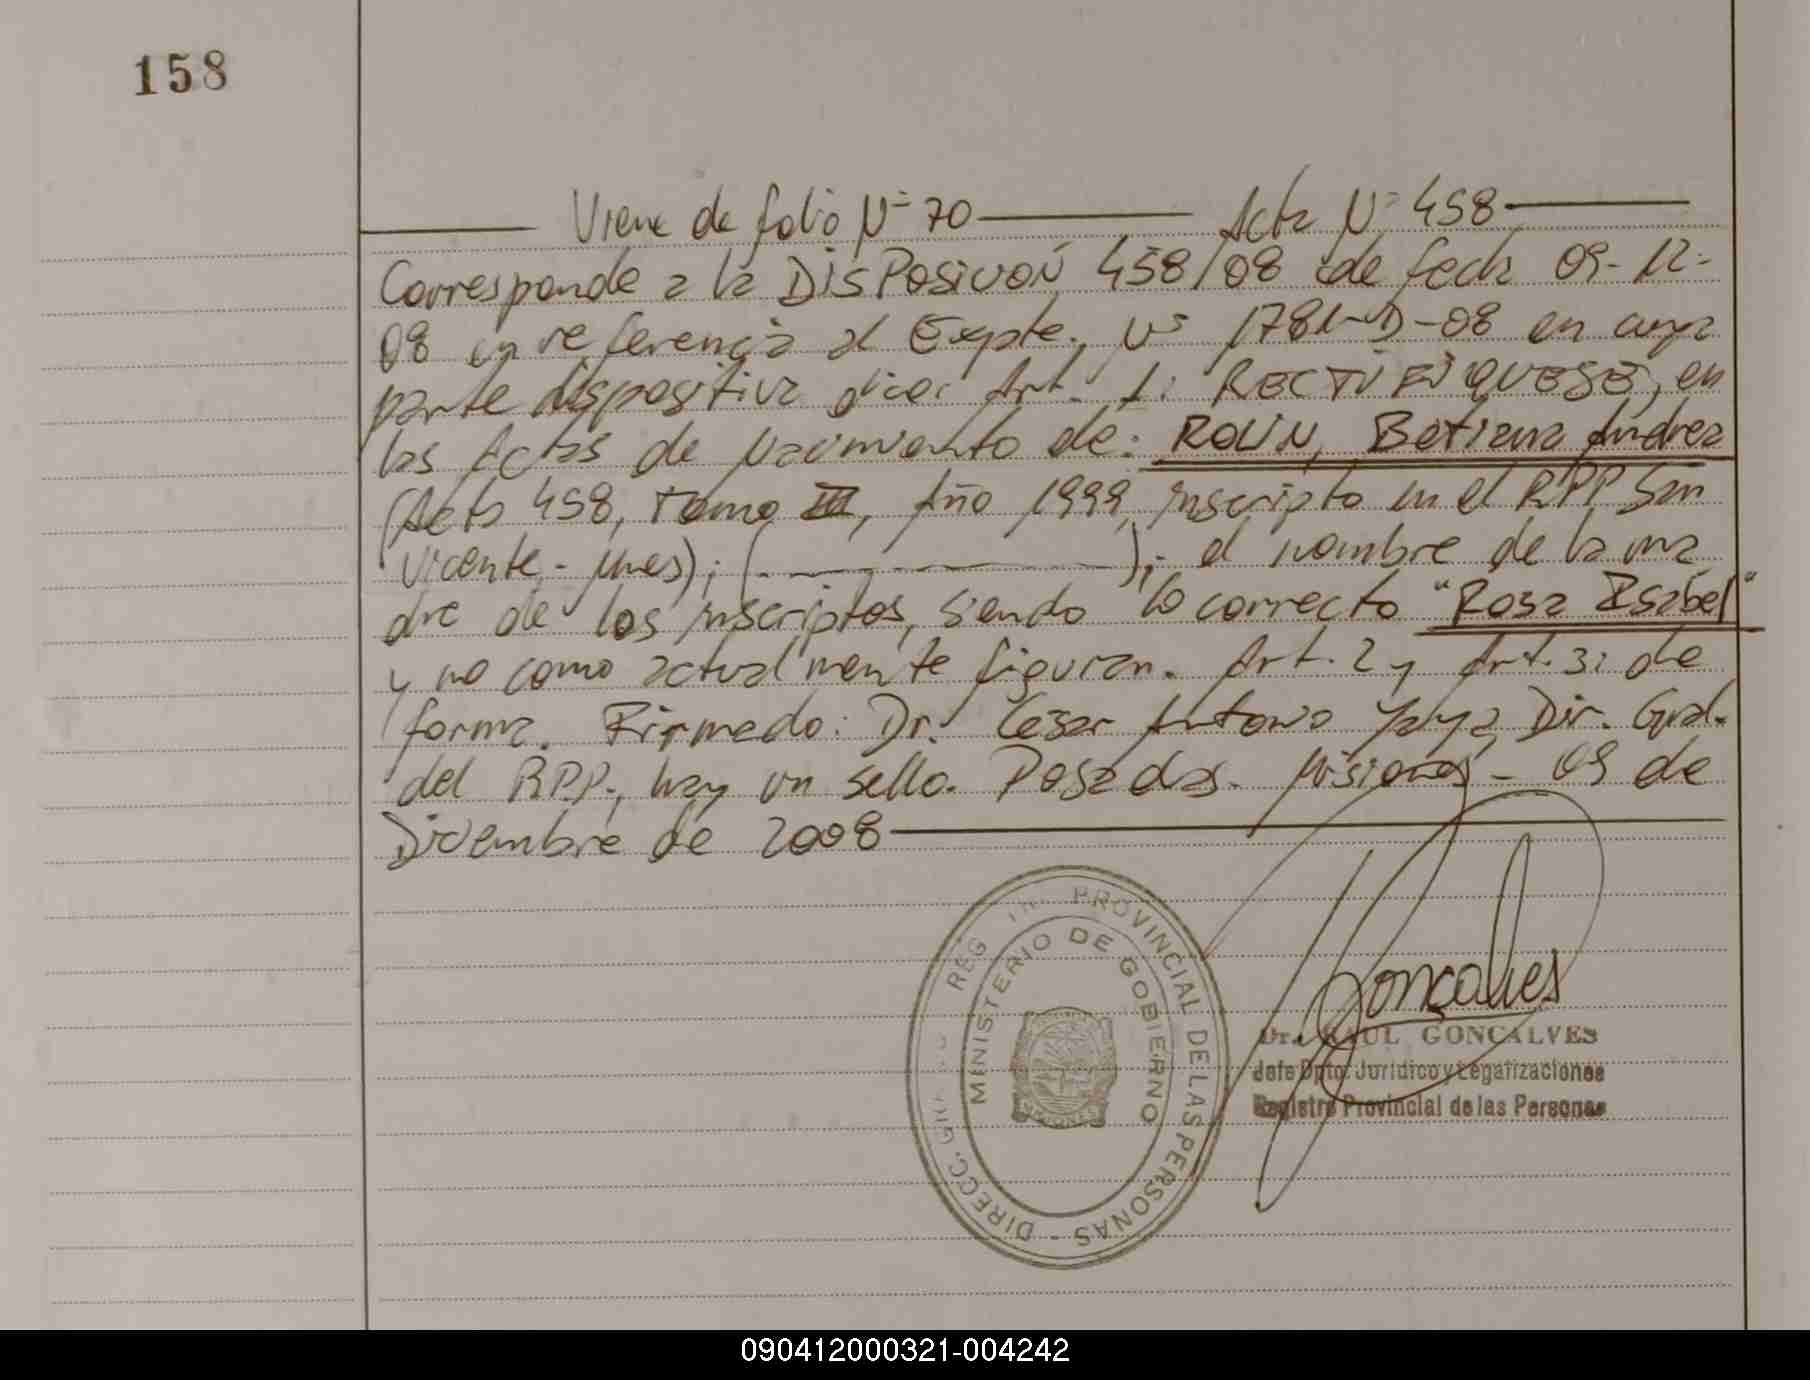 158
Viene de folio Nº 70 Acta Nº 458
Corresponde a la DISPOSICIÓN 458/08 de fecha 09-12-
08 en referencia al Expte. Nº -D-08 en cuya
parte dispositiva dice: Art. 1: RECTIFIQUESE, en
las Actas de Nacimiento de: ROLIN, Betiana Andrea
(Acta 458, Tomo III, Año 1999, inscripto en el RPP San
Vicente - Mnes); ( - - - - - ); el nombre de la ma
dre de los inscriptos, siendo lo correcto "Rosa Isabel"
y no como actualmente figuran. Art. 2 y Art. 3: de
forma. Firmado: Dr. Cesar Antonio Yaya Dir. Gral.
del RPP., hay un sello. Posadas - Misiones - 09 de
Diciembre de 2008
DIRECC. GRAL. REG PROVINCIAL DE LAS PERSONAS -
MINISTERIO DE GOBIERNO
MISIONES
Gonçalves
Dr. RAUL GONCALVES
Jefe Dpto. Jurídico y Legalizaciones
Registro Provincial de las Personas
090412000321-004242